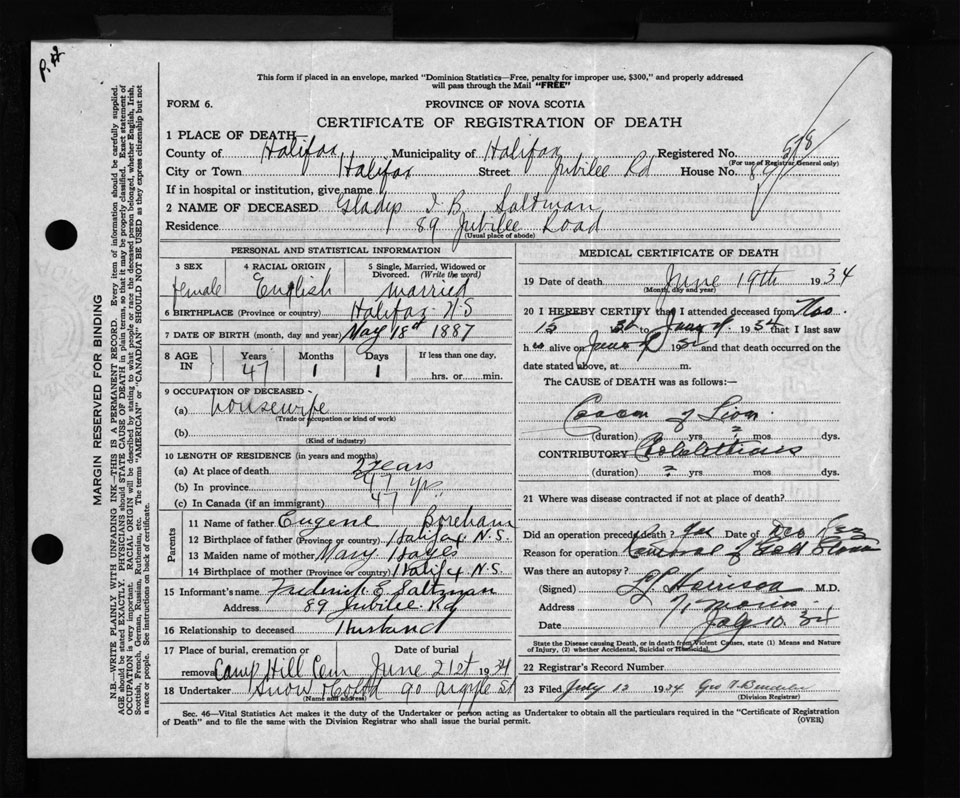 P. 2
This form if placed in an envelope, marked "Dominion Statistics—Free, penalty for improper use, $300," and properly addressed
will pass through the Mail "FREE"
FORM 6.
PROVINCE OF NOVA SCOTIA
CERTIFICATE OF REGISTRATION OF DEATH
MARGIN RESERVED FOR BINDING
N.B.—WRITE PLAINLY WITH UNFADING INK—THIS IS A PERMANENT RECORD. Every item of information should be carefully supplied.
AGE should be stated EXACTLY. PHYSICIANS should STATE CAUSE OF DEATH in plain terms, so that it may be properly classified. Exact statement of
OCCUPATION is very important. RACIAL ORIGIN will be described by stating to what people or race the deceased person belonged, whether English, Irish,
Scottish, French, German, Russian, Ruthenian, etc. The terms "AMERICAN" or "CANADIAN" SHOULD NOT BE USED as they express citizenship but not
a race or people. See instructions on back of certificate.
1 PLACE OF DEATH—
County of Halifax Municipality of Halifax Registered No. 578
(For use of Registrar General only)
City or Town Halifax Street Jubilee Rd House No. 89
If in hospital or institution, give name
2 NAME OF DECEASED Gladys I B Saltman
Residence 89 Jubilee Road
(Usual place of abode)
PERSONAL AND STATISTICAL INFORMATION
3 SEX female
4 RACIAL ORIGIN English
5 Single, Married, Widowed or Divorced. (Write the word) Married
6 BIRTHPLACE (Province or country) Halifax N.S
7 DATE OF BIRTH (month, day and year) May 18th 1887
8 AGE IN Years 47 Months 1 Days 1 If less than one day, hrs. or min.
9 OCCUPATION OF DECEASED—
(a) housewife
(Trade occupation or kind of work)
(b)
(Kind of industry)
10 LENGTH OF RESIDENCE (in years and months)
(a) At place of death 2 years
(b) In province 47 yrs
(c) In Canada (if an immigrant) 47
Parents
11 Name of father Eugene Boreham
12 Birthplace of father (Province or country) Halifax. N.S.
13 Maiden name of mother Mary Hayes
14 Birthplace of mother (Province or country) Halifx N.S.
15 Informant's name Fredrick E Saltman
Address 89 Jubilee Rd
16 Relationship to deceased Husband
17 Place of burial, cremation or removal Camp Hill Cem Date of burial June 21st 1934
18 Undertaker Snow 90 Argyle St
(Name and address)
MEDICAL CERTIFICATE OF DEATH
19 Date of death June 19th 1934
(Month, day and year)
20 I HEREBY CERTIFY that I attended deceased from Nov.
15 to June 1934 that I last saw
h alive on June 19 and that death occurred on the
date stated above, at m.
The CAUSE of DEATH was as follows:—
of Liver
(duration) yrs ? mos dys.
CONTRIBUTORY
(duration) ? yrs mos dys.
21 Where was disease contracted if not at place of death?
Did an operation precede death? Yes Date of Dec
Reason for operation Removal of Gall Stones
Was there an autopsy?
(Signed) Harrison M.D.
Address
Date July 10 34
State the Disease causing Death, or in death from Violent Causes, state (1) Means and Nature
of Injury, (2) whether Accidental, Suicidal or Homicidal.
22 Registrar's Record Number
23 Filed July 12 1934
(Division Registrar)
Sec. 46—Vital Statistics Act makes it the duty of the Undertaker or person acting as Undertaker to obtain all the particulars required in the "Certificate of Registration
of Death" and to file the same with the Division Registrar who shall issue the burial permit.
(OVER)